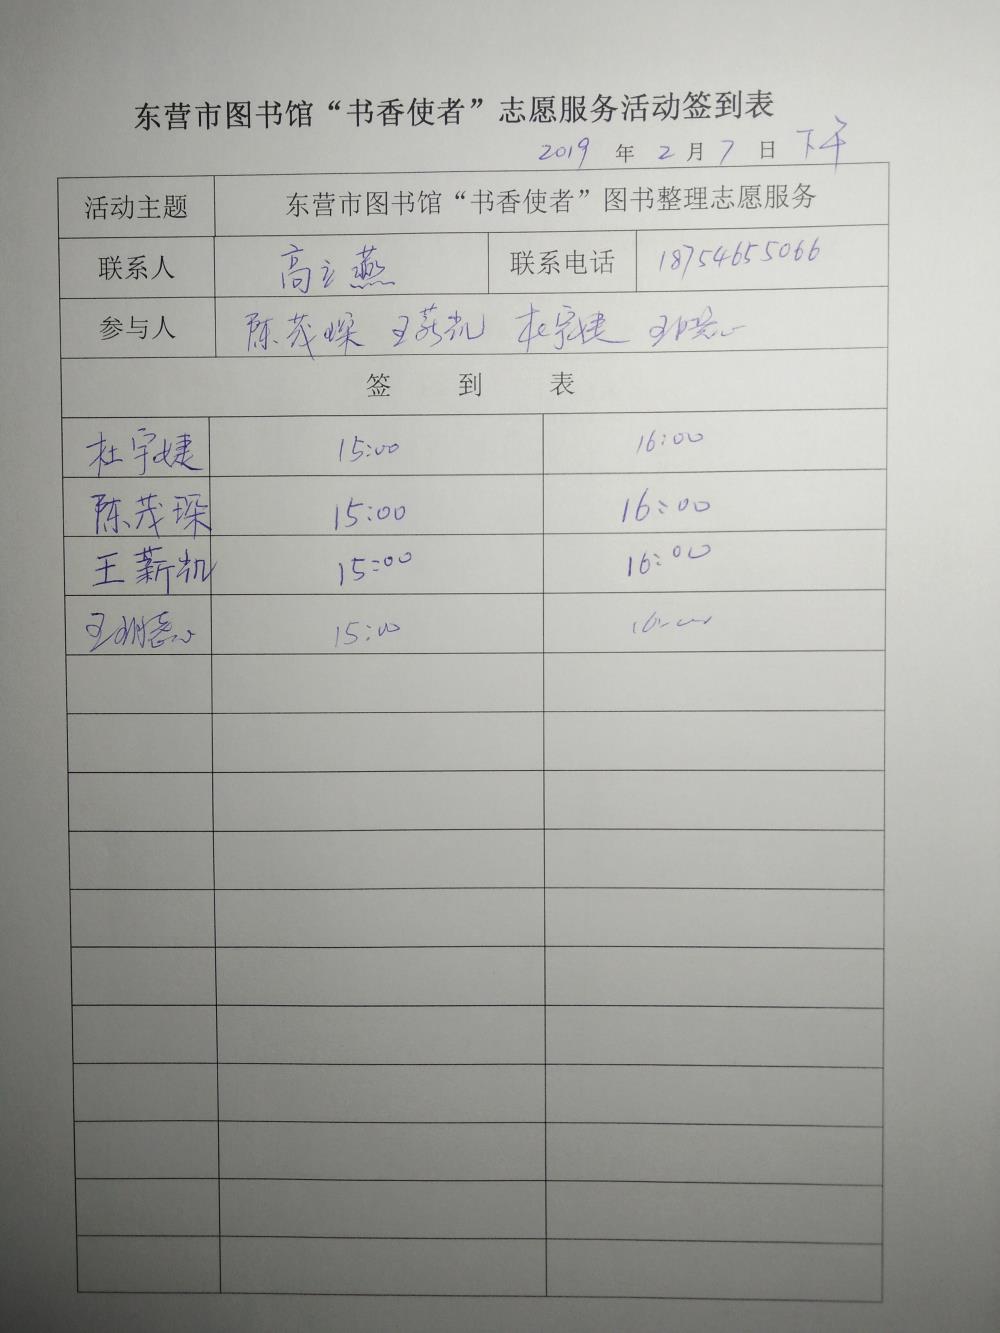 东营市图书馆“书香使者”志愿服务活动签到表
2019 年 2 月 7 日 下午
活动主题 东营市图书馆“书香使者”图书整理志愿服务
联系人 高立燕 联系电话 18754655066
参与人 陈茂琛 王薪凯 杜宇婕
签 到 表
杜宇婕 15:00 16:00
陈茂琛 15:00 16:00
王薪凯 15:00 16:00
15:00 16:00